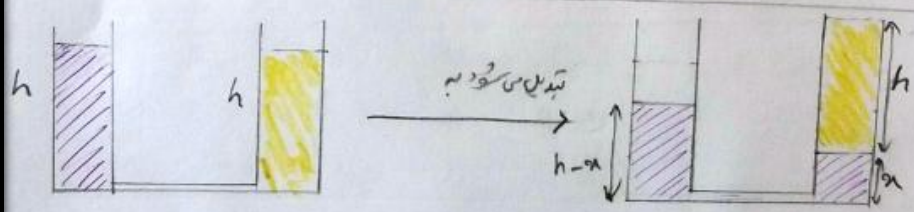 h
h
تبدیل می شود به
h-x
h
x